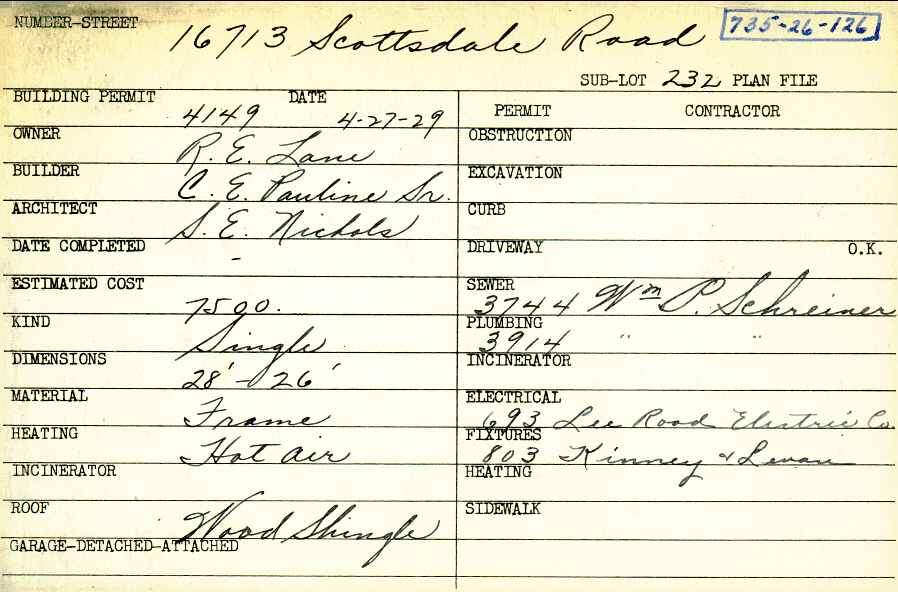 NUMBER-STREET 16713 Scottsdale Road 735-26-126
SUB-LOT 232 PLAN FILE
BUILDING PERMIT 4149 DATE 4-27-29
OWNER R. E. Lane
BUILDER C. E. Pauline Sr.
ARCHITECT S. E. Nichols
DATE COMPLETED -
ESTIMATED COST 7500.
KIND Single
DIMENSIONS 28' - 26'
MATERIAL Frame
HEATING Hot air
INCINERATOR
ROOF Wood Shingle
GARAGE-DETACHED-ATTACHED
PERMIT CONTRACTOR
OBSTRUCTION
EXCAVATION
CURB
DRIVEWAY O.K.
SEWER 3744 Wm P. Schreiner
PLUMBING 3914 " "
INCINERATOR
ELECTRICAL 693 Lee Road Electric Co.
FIXTURES 803 Kinney & Levan
HEATING
SIDEWALK